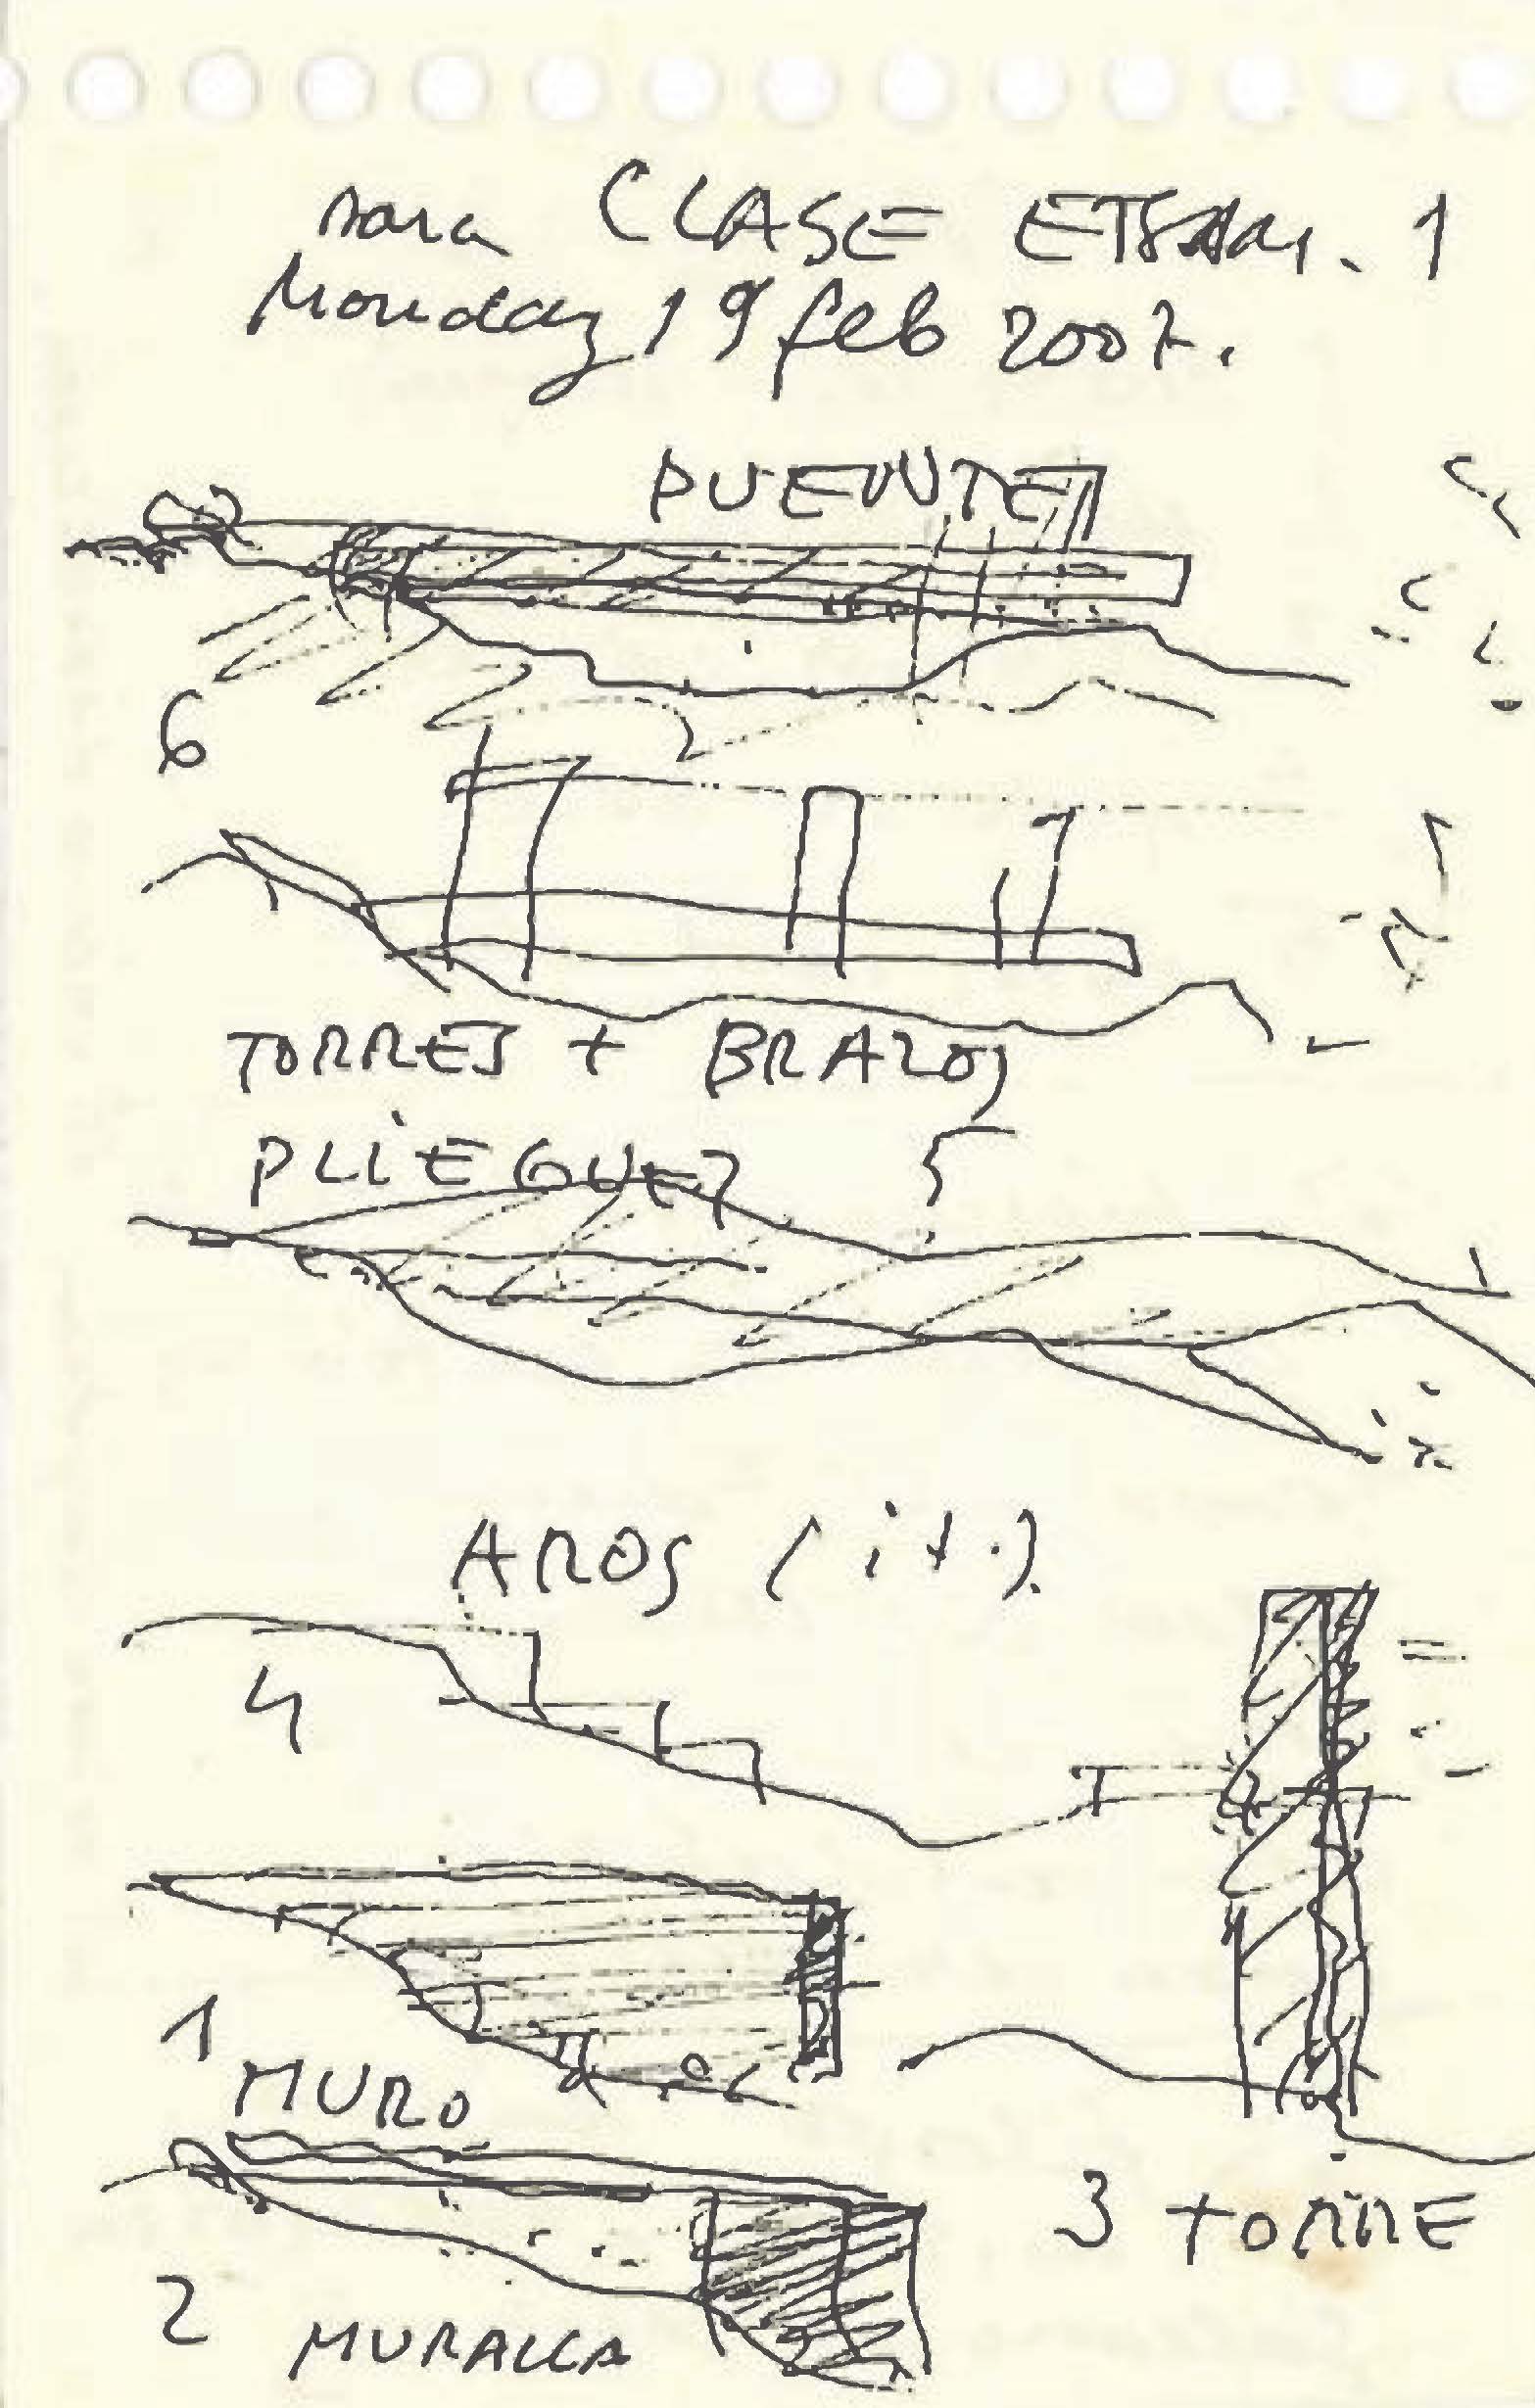 para CLASE ETSAM. 1
Monday 19 feb 2007.
PUENTE 7
6
TORRES + BRAZOS
PLIEGUES 5
AROS (it.)
4
1
MURO
3 TORRE
2 MURALLA